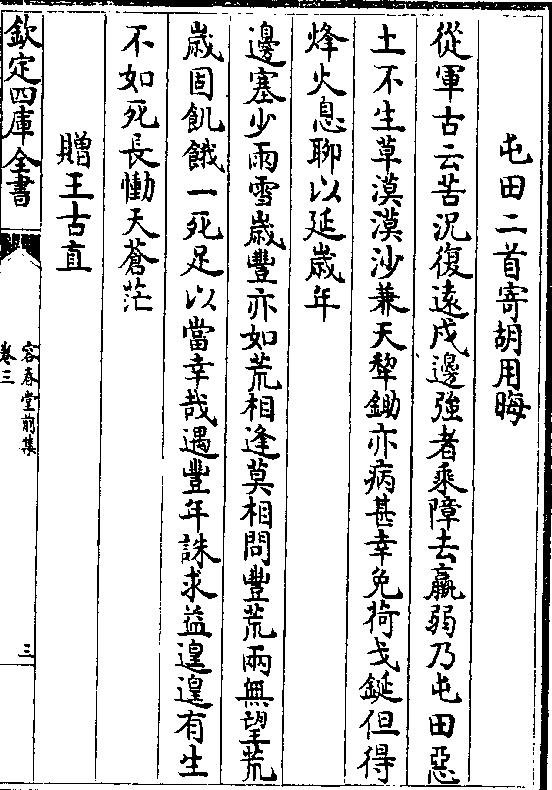 屯田二首寄胡用晦
從軍古云苦況復遠戍邊強者乘障去羸弱乃屯田惡
土不生草漠漠沙兼天犂鋤亦病甚幸免荷戈鋋但得
烽火息聊以延歲年
邊塞少雨雪歲豐亦如荒相逢莫相問豐荒兩無望荒
歲固飢餓一死足以當幸哉遇豐年誅求益遑遑有生
不如死長慟天蒼茫
贈王古直
欽定四庫全書
容春堂前集
卷三
三